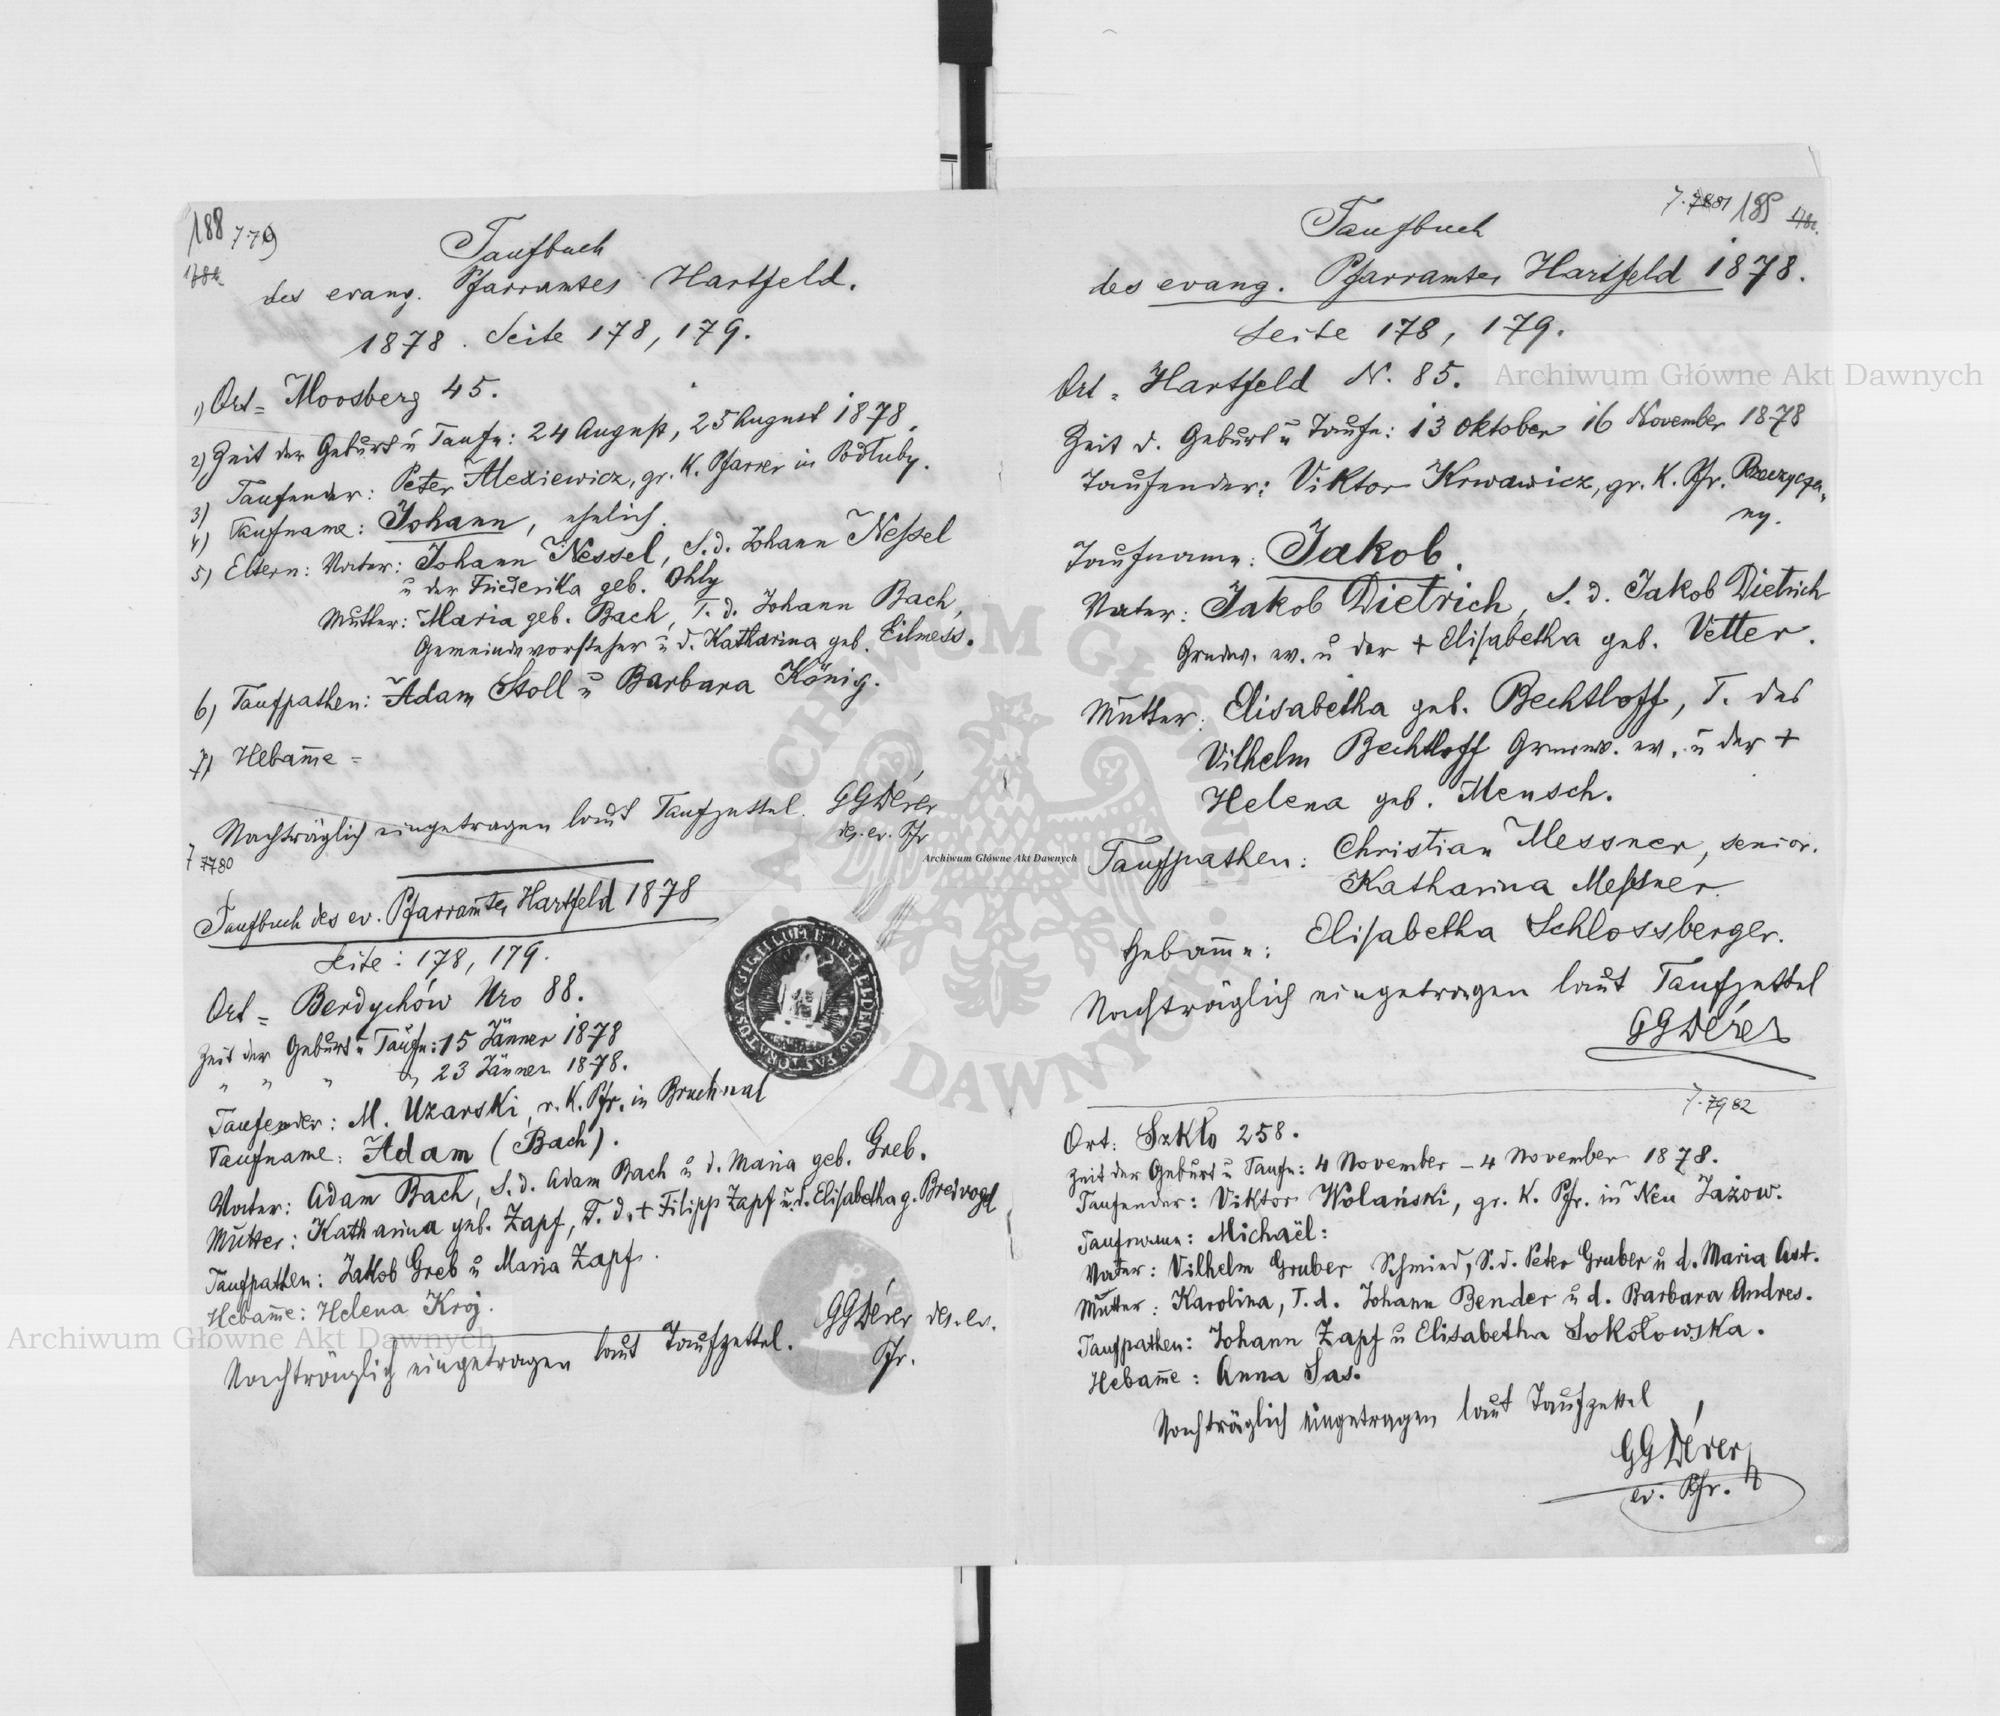 188 779
Taufbuch
des evang. Pfarramtes Hartfeld.
1878. Seite 178, 179.
1) Ort = Moosberg 45.
2) Zeit der Geburt u Taufe: 24 August, 25 August 1878.
3) Taufender: Peter Alexiewicz, gr. K. Pfarrer in Podłuby.
4) Taufname: Johann, ehelich.
5) Eltern: Vater: Johann Nessel, S. d. Johann Neßel
u der Friederika geb. Ohly
Mutter: Maria geb. Bach, T. d. Johann Bach,
Gemeindevorsteher u d. Katharina geb. Eilmess.
6) Taufpathen: Adam Stoll u Barbara König.
7) Hebam̄e =
Nachträglich eingetragen laut Taufzettel. GGDérer
ev. Pfr
Taufbuch des ev. Pfarramtes Hartfeld 1878
Seite: 178, 179.
Ort = Berdychów Nro 88.
Zeit der Geburt u Taufe: 15 Jänner 1878
" " " " 23 Jänner 1878.
Taufender: M. Uzarski, r. K. Pfr. in Bruchnal
Taufname: Adam (Bach).
Vater: Adam Bach, S. d. Adam Bach u d. Maria geb. Greb.
Mutter: Katharina geb. Zapf, T. d. + Filipp Zapf u. d. Elisabetha g. Breivogel
Taufpathen: Jakob Greb u Maria Zapf.
Hebam̄e: Helena Kroj.
Nachträglich eingetragen laut Taufzettel. GGDérer
Pfr.
SIGILLUM HARTFELDENSIS PASTORATUS
Taufbuch
des evang. Pfarramtes Hartfeld 1878.
Seite 178, 179.
Ort = Hartfeld N. 85.
Zeit d. Geburt u Taufe: 13 Oktober 16 November 1878
Taufender: Viktor Krwawicz, gr. K. Pfr. Rzeczyczany.
Taufname: Jakob.
Vater: Jakob Dietrich, S. d. Jakob Dietrich
Grundw. ev. u der + Elisabetha geb. Vetter.
Mutter: Elisabetha geb. Bechtloff, T. des
Vilhelm Bechtloff Grundw. ev. u der +
Helena geb. Mensch.
Taufpathen: Christian Messner, senior.
Katharina Meßner.
Hebam̄e: Elisabetha Schlossberger.
Nachträglich eingetragen laut Taufzettel
GGDérer
Ort: Szkło 258.
Zeit der Geburt u Taufe: 4 November – 4 November 1878.
Taufender: Viktor Wolański, gr. K. Pfr. in Neu Jażow.
Taufname: Michaël:
Vater: Vilhelm Gruber Schmied, S. d. Peter Gruber u d. Maria Ast.
Mutter: Karolina, T. d. Johann Bender u d. Barbara Andres.
Taufpathen: Johann Zapf u Elisabetha Sokołowska.
Hebam̄e: Anna Sas.
Nachträglich eingetragen laut Taufzettel
GGDérer
ev. Pfr.
Archiwum Główne Akt Dawnych
Archiwum Główne Akt Dawnych
Archiwum Główne Akt Dawnych
ARCHIWUM GŁÓWNE AKT DAWNYCH